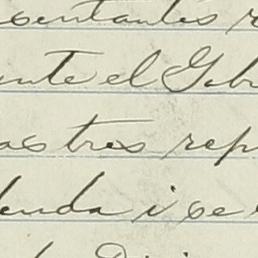 sentantes r
ente el Gobr
as tres repr
enda i se